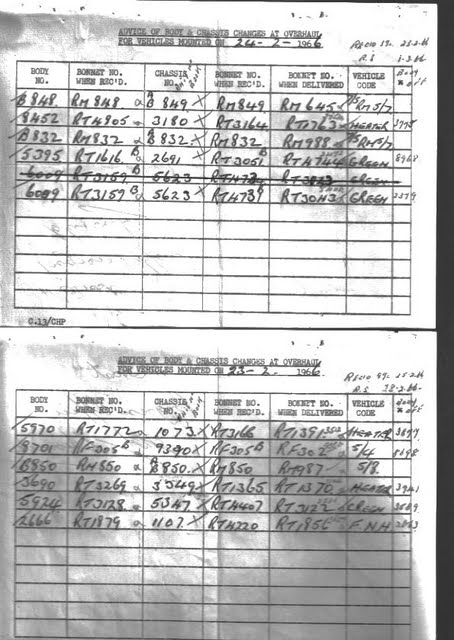 ADVICE OF BODY & CHASSIS CHANGES AT OVERHAUL
FOR VEHICLES MOUNTED ON 24-2-1966
BODY NO. BONNET NO. WHEN REC'D. CHASSIS NO. BONNET NO. WHEN REC'D. BONNET NO. WHEN DELIVERED VEHICLE CODE Body
B848 RM848 B849 RM849 RM645 RM5/7
8452 RT4805 3180 RT3164 RT1763 HEATER
B832 RM832 B832 RM832 RM988 RM5/7
5395 RT1616 2691 RT3051 RT4744 GREEN 8968
6009 RT3159 5623 RT4739 GREEN
6009 RT3159 5623 RT4739 RT3043 GREEN 2379
C.13/CHP
ADVICE OF BODY & CHASSIS CHANGES AT OVERHAUL
FOR VEHICLES MOUNTED ON 23-2-1966
BODY NO. BONNET NO. WHEN REC'D. CHASSIS NO. BONNET NO. WHEN REC'D. BONNET NO. WHEN DELIVERED VEHICLE CODE Body
5970 RT1772 1073 RT3166 RT1391 HEATER
8701 RF305 9390 RF305 RF302 5/4
B850 RM850 B850 RM850 RM987 5/8
3690 RT3269 3349 RT1365 RT1370 HEATER 3941
5924 RT3128 5347 RT4407 RT3122 GREEN
2666 RT1879 1107 RT4220 RT1856 F.N.H